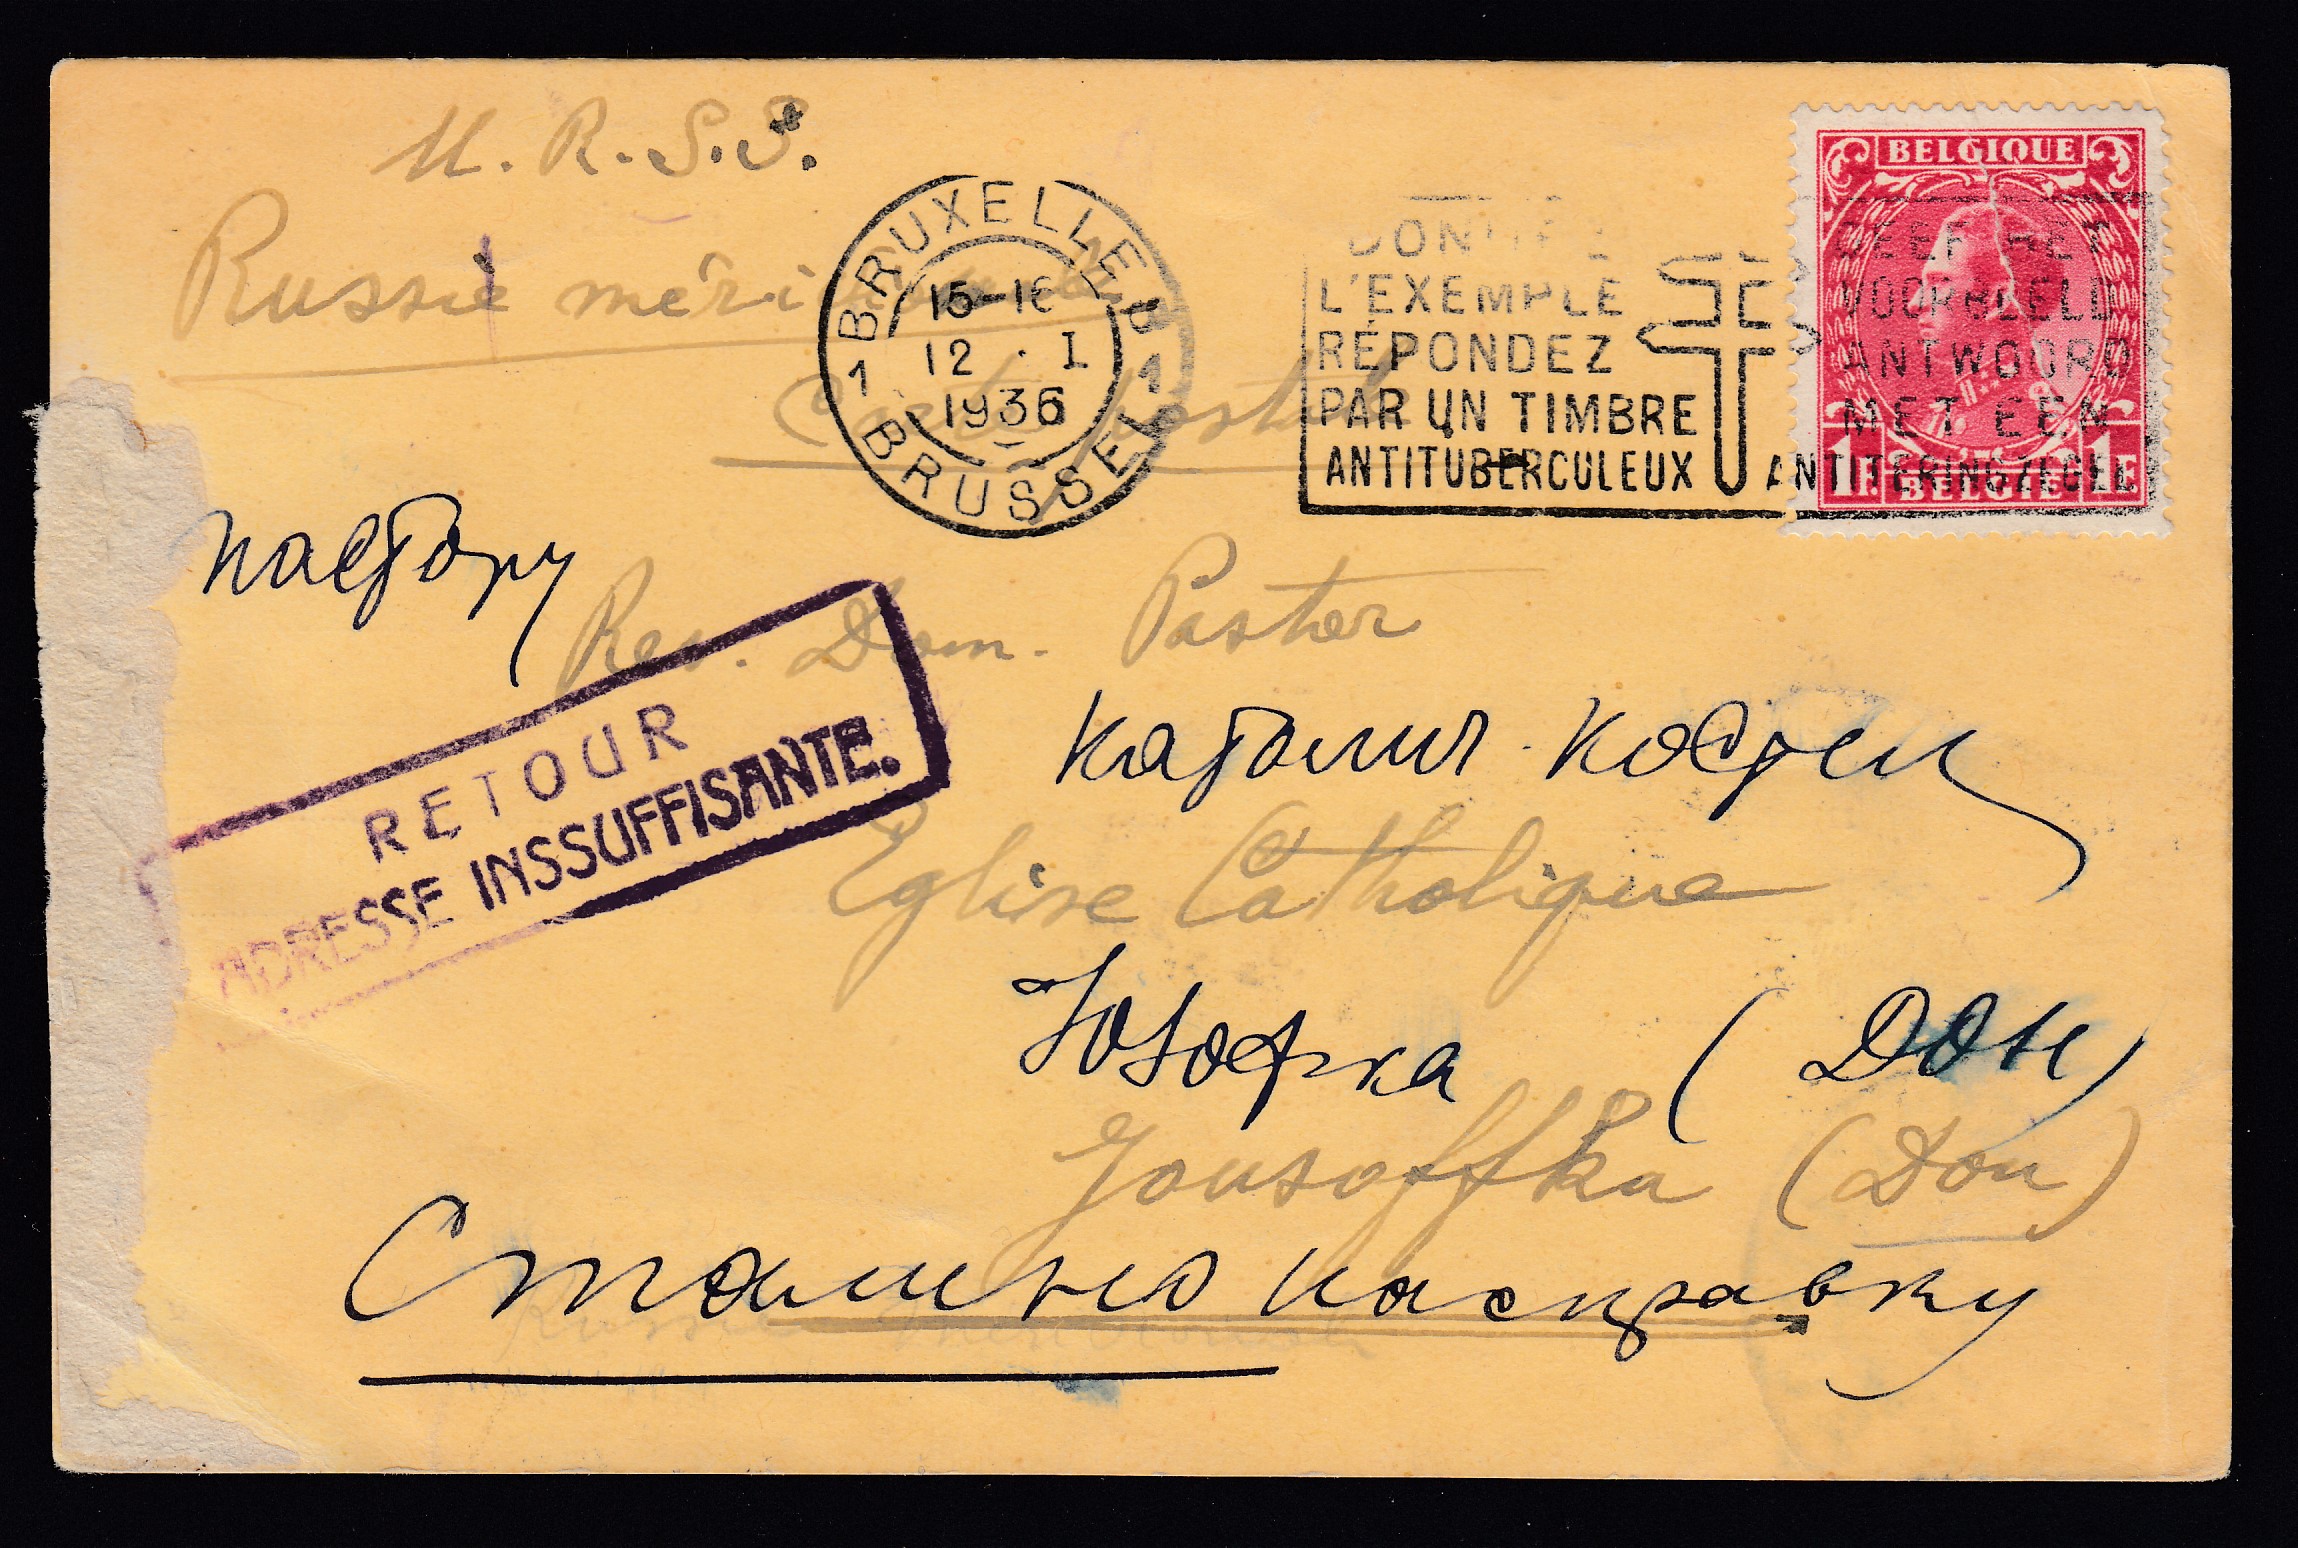 U.R.S.S.
Russie méridionale
Carte postale
BRUXELLES 1
15-16
12 · I
1936
1 BRUSSEL 1
DONNEZ
L'EXEMPLE
RÉPONDEZ
PAR UN TIMBRE
ANTITUBERCULEUX
GEEF HET
VOORBEELD
ANTWOORD
MET EEN
ANTITERINGZEGEL
BELGIQUE
1F. BELGIË 1F
пастору
Rev. Dom. Pastor
RETOUR
ADRESSE INSSUFFISANTE.
католич. костел
Eglise Catholique
Юзофка (Дон)
Jousoffka (Don)
Сталино на справку